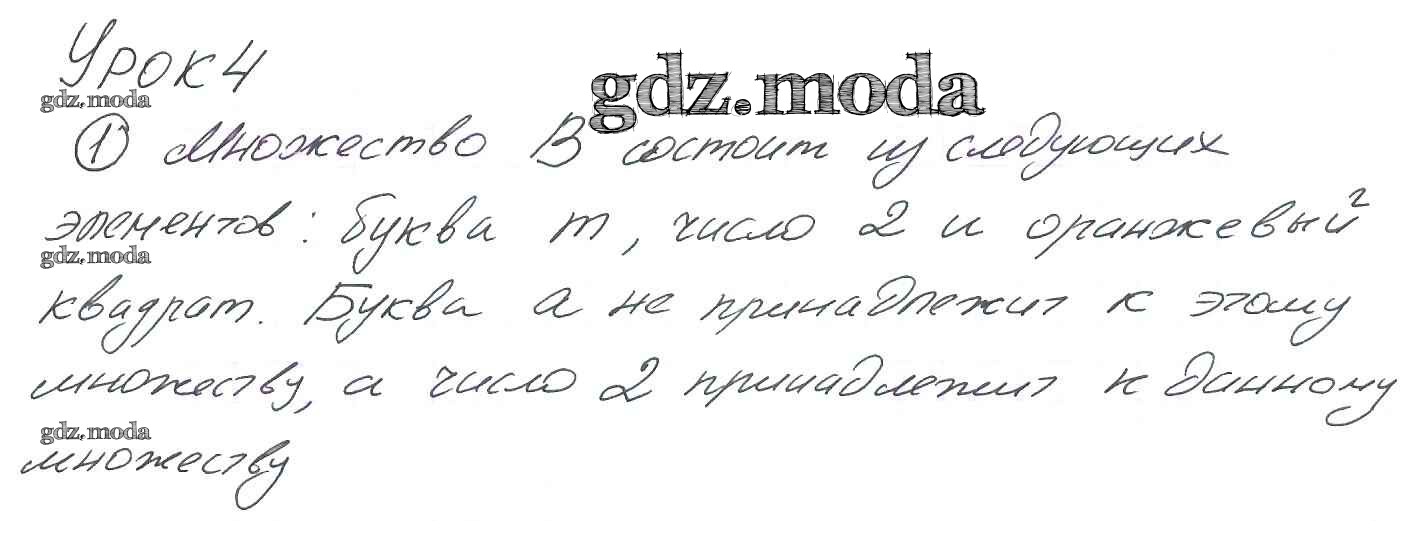 Урок 4
gdz.moda
gdz.moda
① Множество В состоит из следующих
элементов: буква m, число 2 и оранжевый
gdz.moda
квадрат. Буква а не принадлежит к этому
множеству, а число 2 принадлежит к данному
gdz.moda
множеству